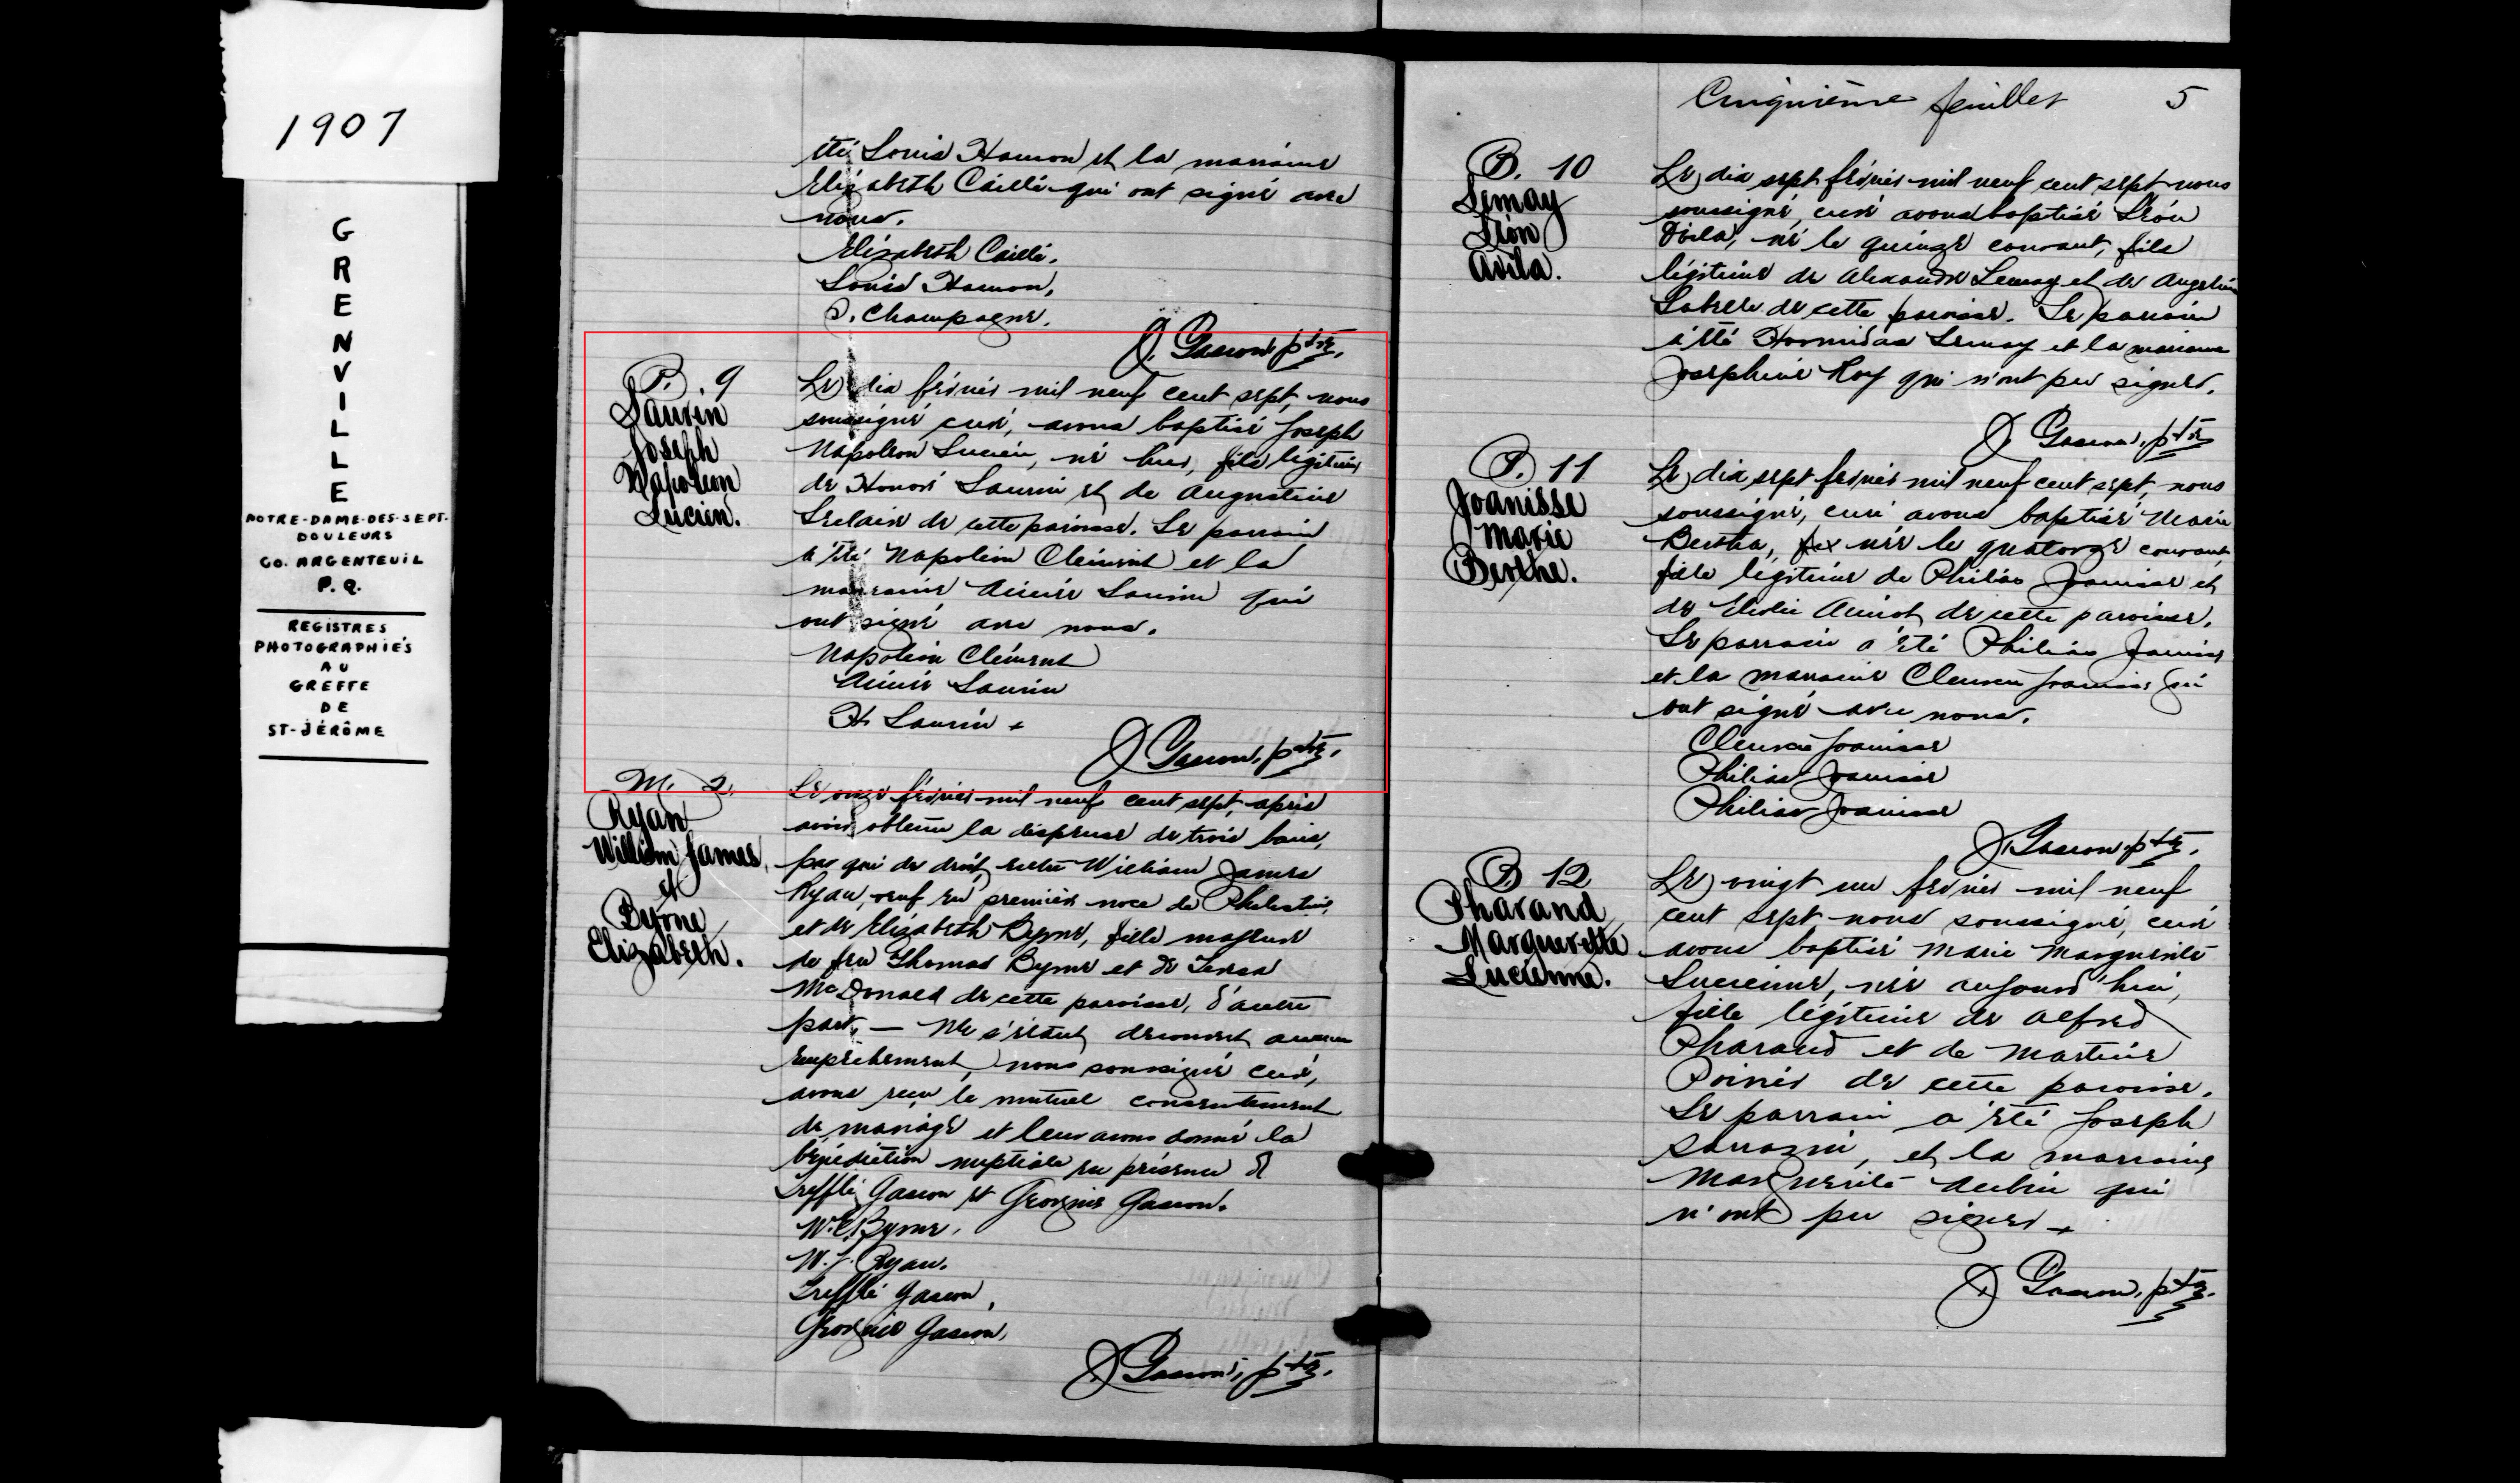 1907
GRENVILLE
NOTRE-DAME-DES-SEPT-
DOULEURS
CO. ARGENTEUIL
P.Q.
REGISTRES
PHOTOGRAPHIÉS
AU
GREFFE
DE
ST-JÉRÔME
été Louis Hamon et la marraine
Elizabeth Caillé qui ont signé avec
nous.
Elizabeth Caillé.
Louis Hamon,
Champagne.
J. Gascon, ptre.
B. 9
Laurin
Joseph
Napoléon
Lucien.
Le dix février mil neuf cent sept, nous
soussigné, curé, avons baptisé Joseph
Napoléon Lucien, né hier, fils légitime
de Honoré Laurin et de Augustine
Leclair de cette paroisse. Le parrain
a été Napoléon Clément et la
marraine Aimée Laurin qui
ont signé avec nous.
Napoléon Clément
Aimée Laurin
H. Laurin
J. Gascon, ptre.
M. 2.
Ryan
William James,
et
Byrne
Elizabeth.
Le onze février mil neuf cent sept, après
avoir obtenu la dispense de trois bans,
par qui de droit, entre William James
Ryan, veuf en première noce de
et de Elizabeth Byrne, fille majeure
de feu Thomas Byrne et de
McDonald de cette paroisse, d'autre
part, — Ne s'étant découvert aucun
empêchement, nous soussigné curé,
avons reçu le mutuel consentement
de mariage et leur avons donné la
bénédiction nuptiale en présence de
Trefflé Gascon et Georgie Gascon.
Byrne.
W. J. Ryan.
Trefflé Gascon,
Gascon,
J. Gascon, ptre.
Cinquième feuillet 5
B. 10
Lemay
Léon
Avila.
Le dix sept février mil neuf cent sept nous
soussigné, curé avons baptisé Léon
Avila, né le quinze courant, fils
légitime de Alexandre Lemay et de Angelina
Labelle de cette paroisse. Le parrain
a été Hormidas Lemay et la marraine
Josephine Roy qui n'ont pu signer.
J. Gascon, ptre
B. 11
Joanisse
Marie
Berthe.
Le dix sept février mil neuf cent sept, nous
soussigné, curé avons baptisé Marie
Bertha, née le quatorze courant,
fille légitime de Philias Joanisse et
de cette paroisse.
Le parrain a été Philias Joanisse
et la marraine Joanisse qui
ont signé avec nous.
Joanisse
Philias Joanisse
Philias Joanisse
J. Gascon ptre.
B 12
Pharand
Marguerite
Lucienne.
Le vingt un février mil neuf
cent sept nous soussigné, curé
avons baptisé Marie Marguerite
Lucienne, née aujourd'hui,
fille légitime de Alfred
Pharand et de Martine
Poirier de cette paroisse.
Le parrain a été Joseph
Sarrazin, et la marraine
Marguerite Aubin qui
n'ont pu signer
J. Gascon, ptre.